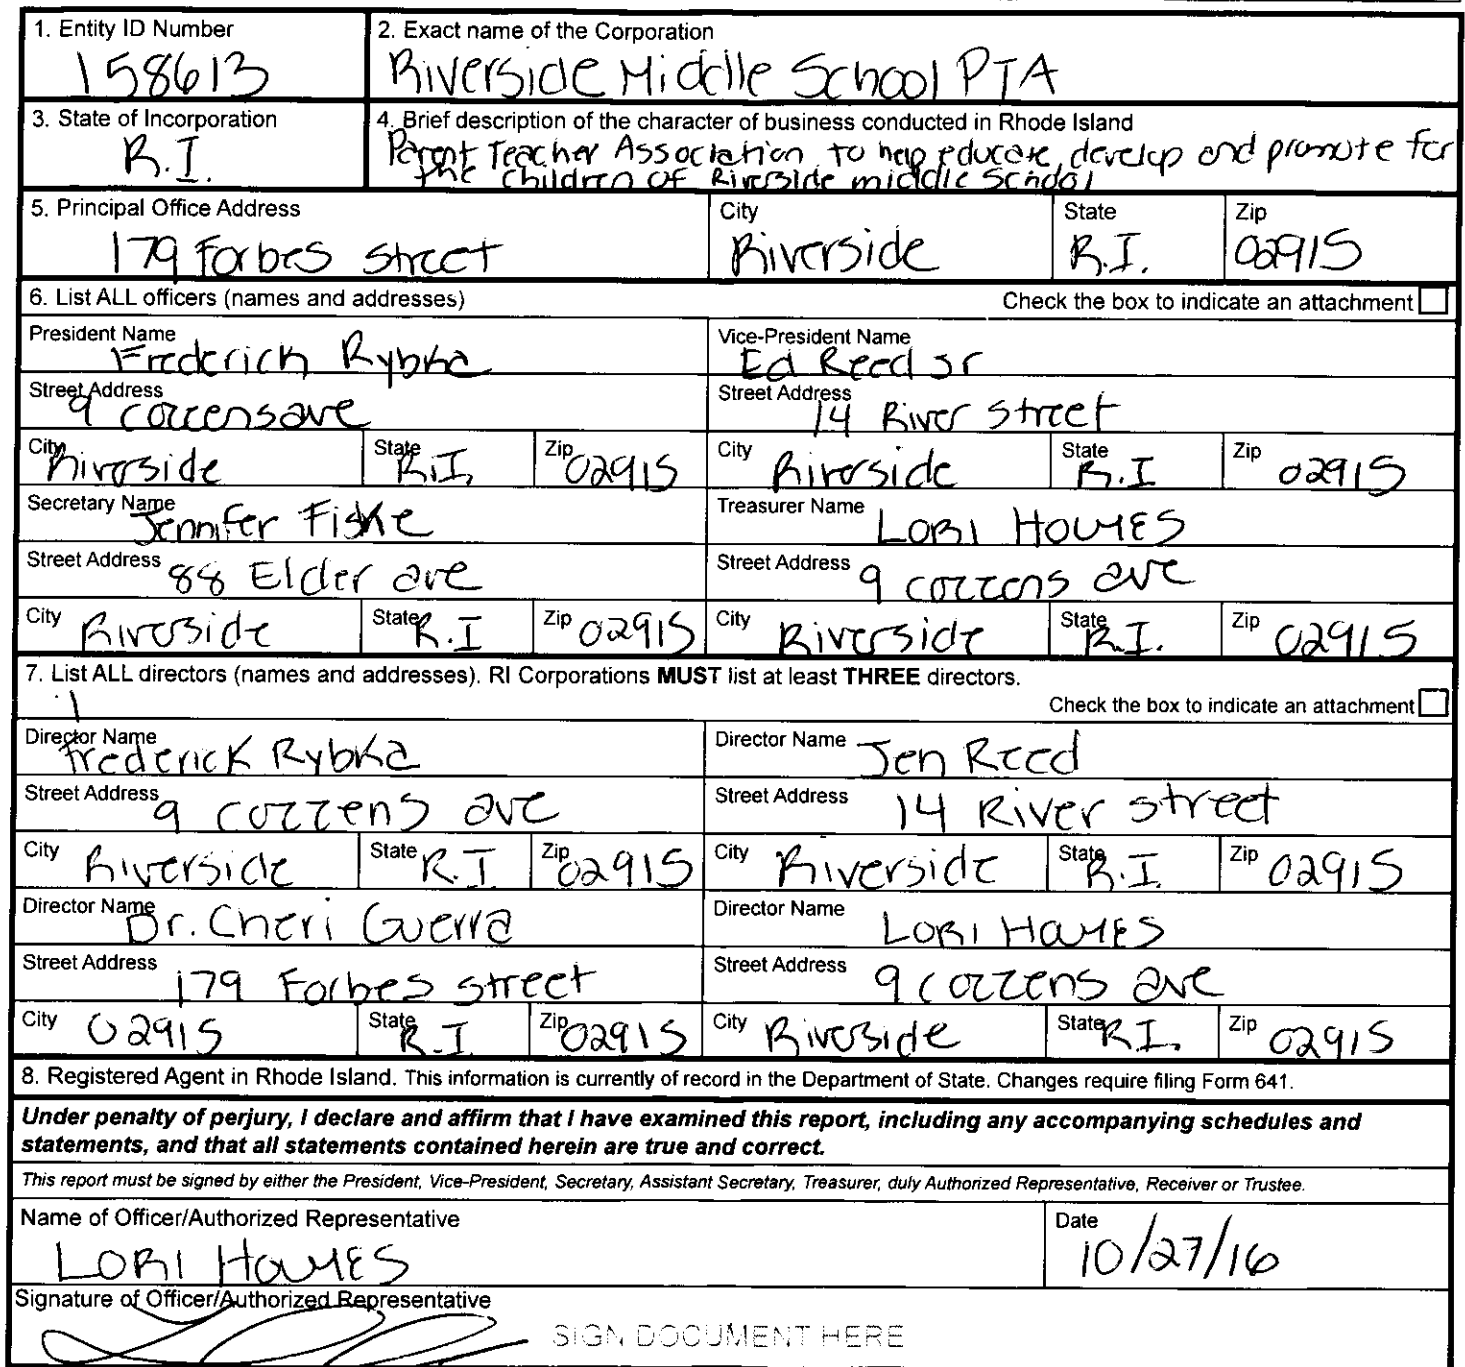 1. Entity ID Number
158613
2. Exact name of the Corporation
Riverside Middle School PTA
3. State of Incorporation
R.I.
4. Brief description of the character of business conducted in Rhode Island
Parent Teacher Association to help educate, develop and promote for
the children of Riverside middle School
5. Principal Office Address
179 Forbes Street
City
Riverside
State
R.I.
Zip
02915
6. List ALL officers (names and addresses)
Check the box to indicate an attachment
President Name
Frederick Rybka
Vice-President Name
Ed Reed Sr
Street Address
9 cozzens ave
Street Address
14 River Street
City Riverside State R.I. Zip 02915
City Riverside State R.I Zip 02915
Secretary Name
Jennifer Fiske
Treasurer Name
LORI
Street Address 88 Elder ave
Street Address 9 cozzens ave
City Riverside State R.I Zip 02915
City Riverside State R.I. Zip 02915
7. List ALL directors (names and addresses). RI Corporations MUST list at least THREE directors.
Check the box to indicate an attachment
Director Name
Frederick Rybka
Director Name Jen Reed
Street Address 9 cozzens ave
Street Address 14 River street
City Riverside State R.I Zip 02915
City Riverside State R.I. Zip 02915
Director Name
Dr. Cheri Guerra
Director Name
LORI
Street Address 179 Forbes street
Street Address 9 cozzens ave
City 02915 State R.I Zip 02915
City Riverside State R.I. Zip 02915
8. Registered Agent in Rhode Island. This information is currently of record in the Department of State. Changes require filing Form 641.
Under penalty of perjury, I declare and affirm that I have examined this report, including any accompanying schedules and
statements, and that all statements contained herein are true and correct.
This report must be signed by either the President, Vice-President, Secretary, Assistant Secretary, Treasurer, duly Authorized Representative, Receiver or Trustee.
Name of Officer/Authorized Representative
LORI
Date
10/27/16
Signature of Officer/Authorized Representative
SIGN DOCUMENT HERE